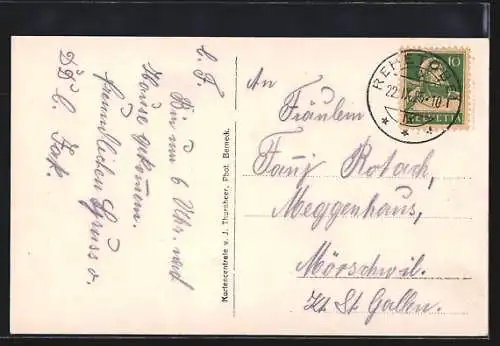 L. F.
Bin um 6 Uhr. nach
Hause gekommen.
freundlichen Gruss v.
D. b. Jak.
Kartencentrale v. J. Thurnheer, Phot. Berneck.
10
HELVETIA
REHETOBEL
22.
An
Fräulein
Fanj Rotach,
Meggenhaus,
Mörschwil.
Kt. St. Gallen.